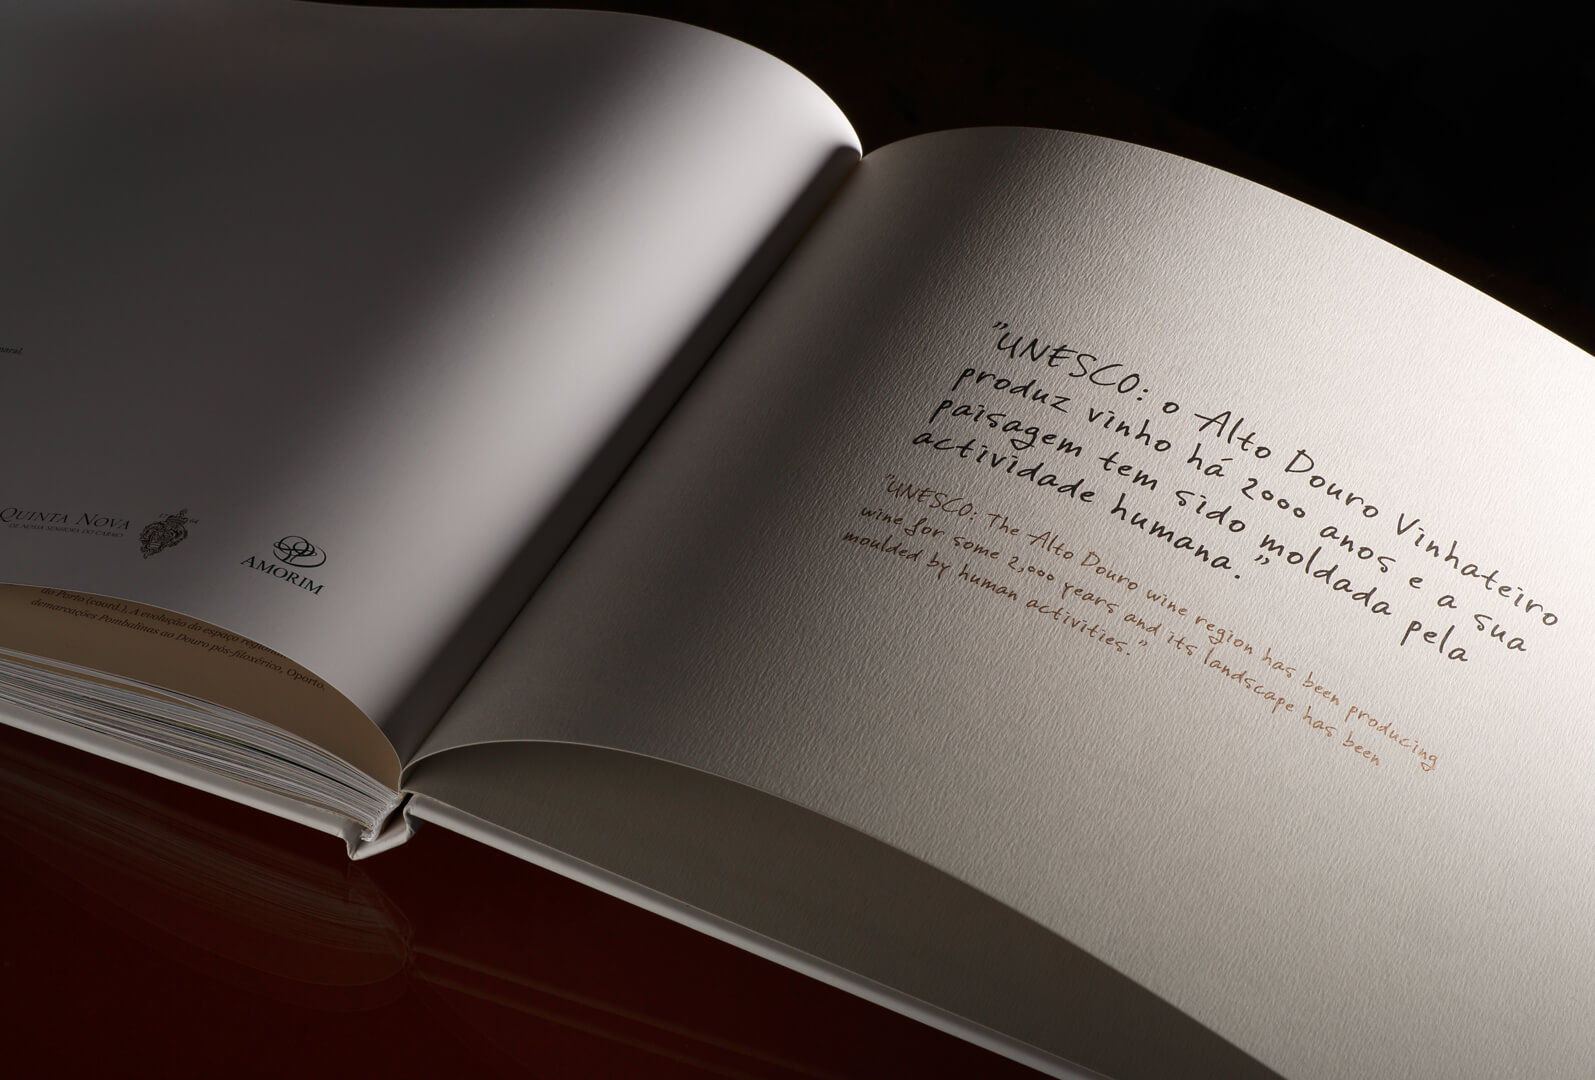 QUINTA NOVA
DE NOSSA SENHORA DO CARMO
17 64
AMORIM
do Porto (coord.), A evolução do espaço
demarcações Pombalinas ao Douro pós-filoxérico, Oporto.
"UNESCO: o Alto Douro Vinhateiro
produz vinho há 2000 anos e a sua
paisagem tem sido moldada pela
actividade humana."
"UNESCO: The Alto Douro wine region has been producing
wine for some 2,000 years and its landscape has been
moulded by human activities."